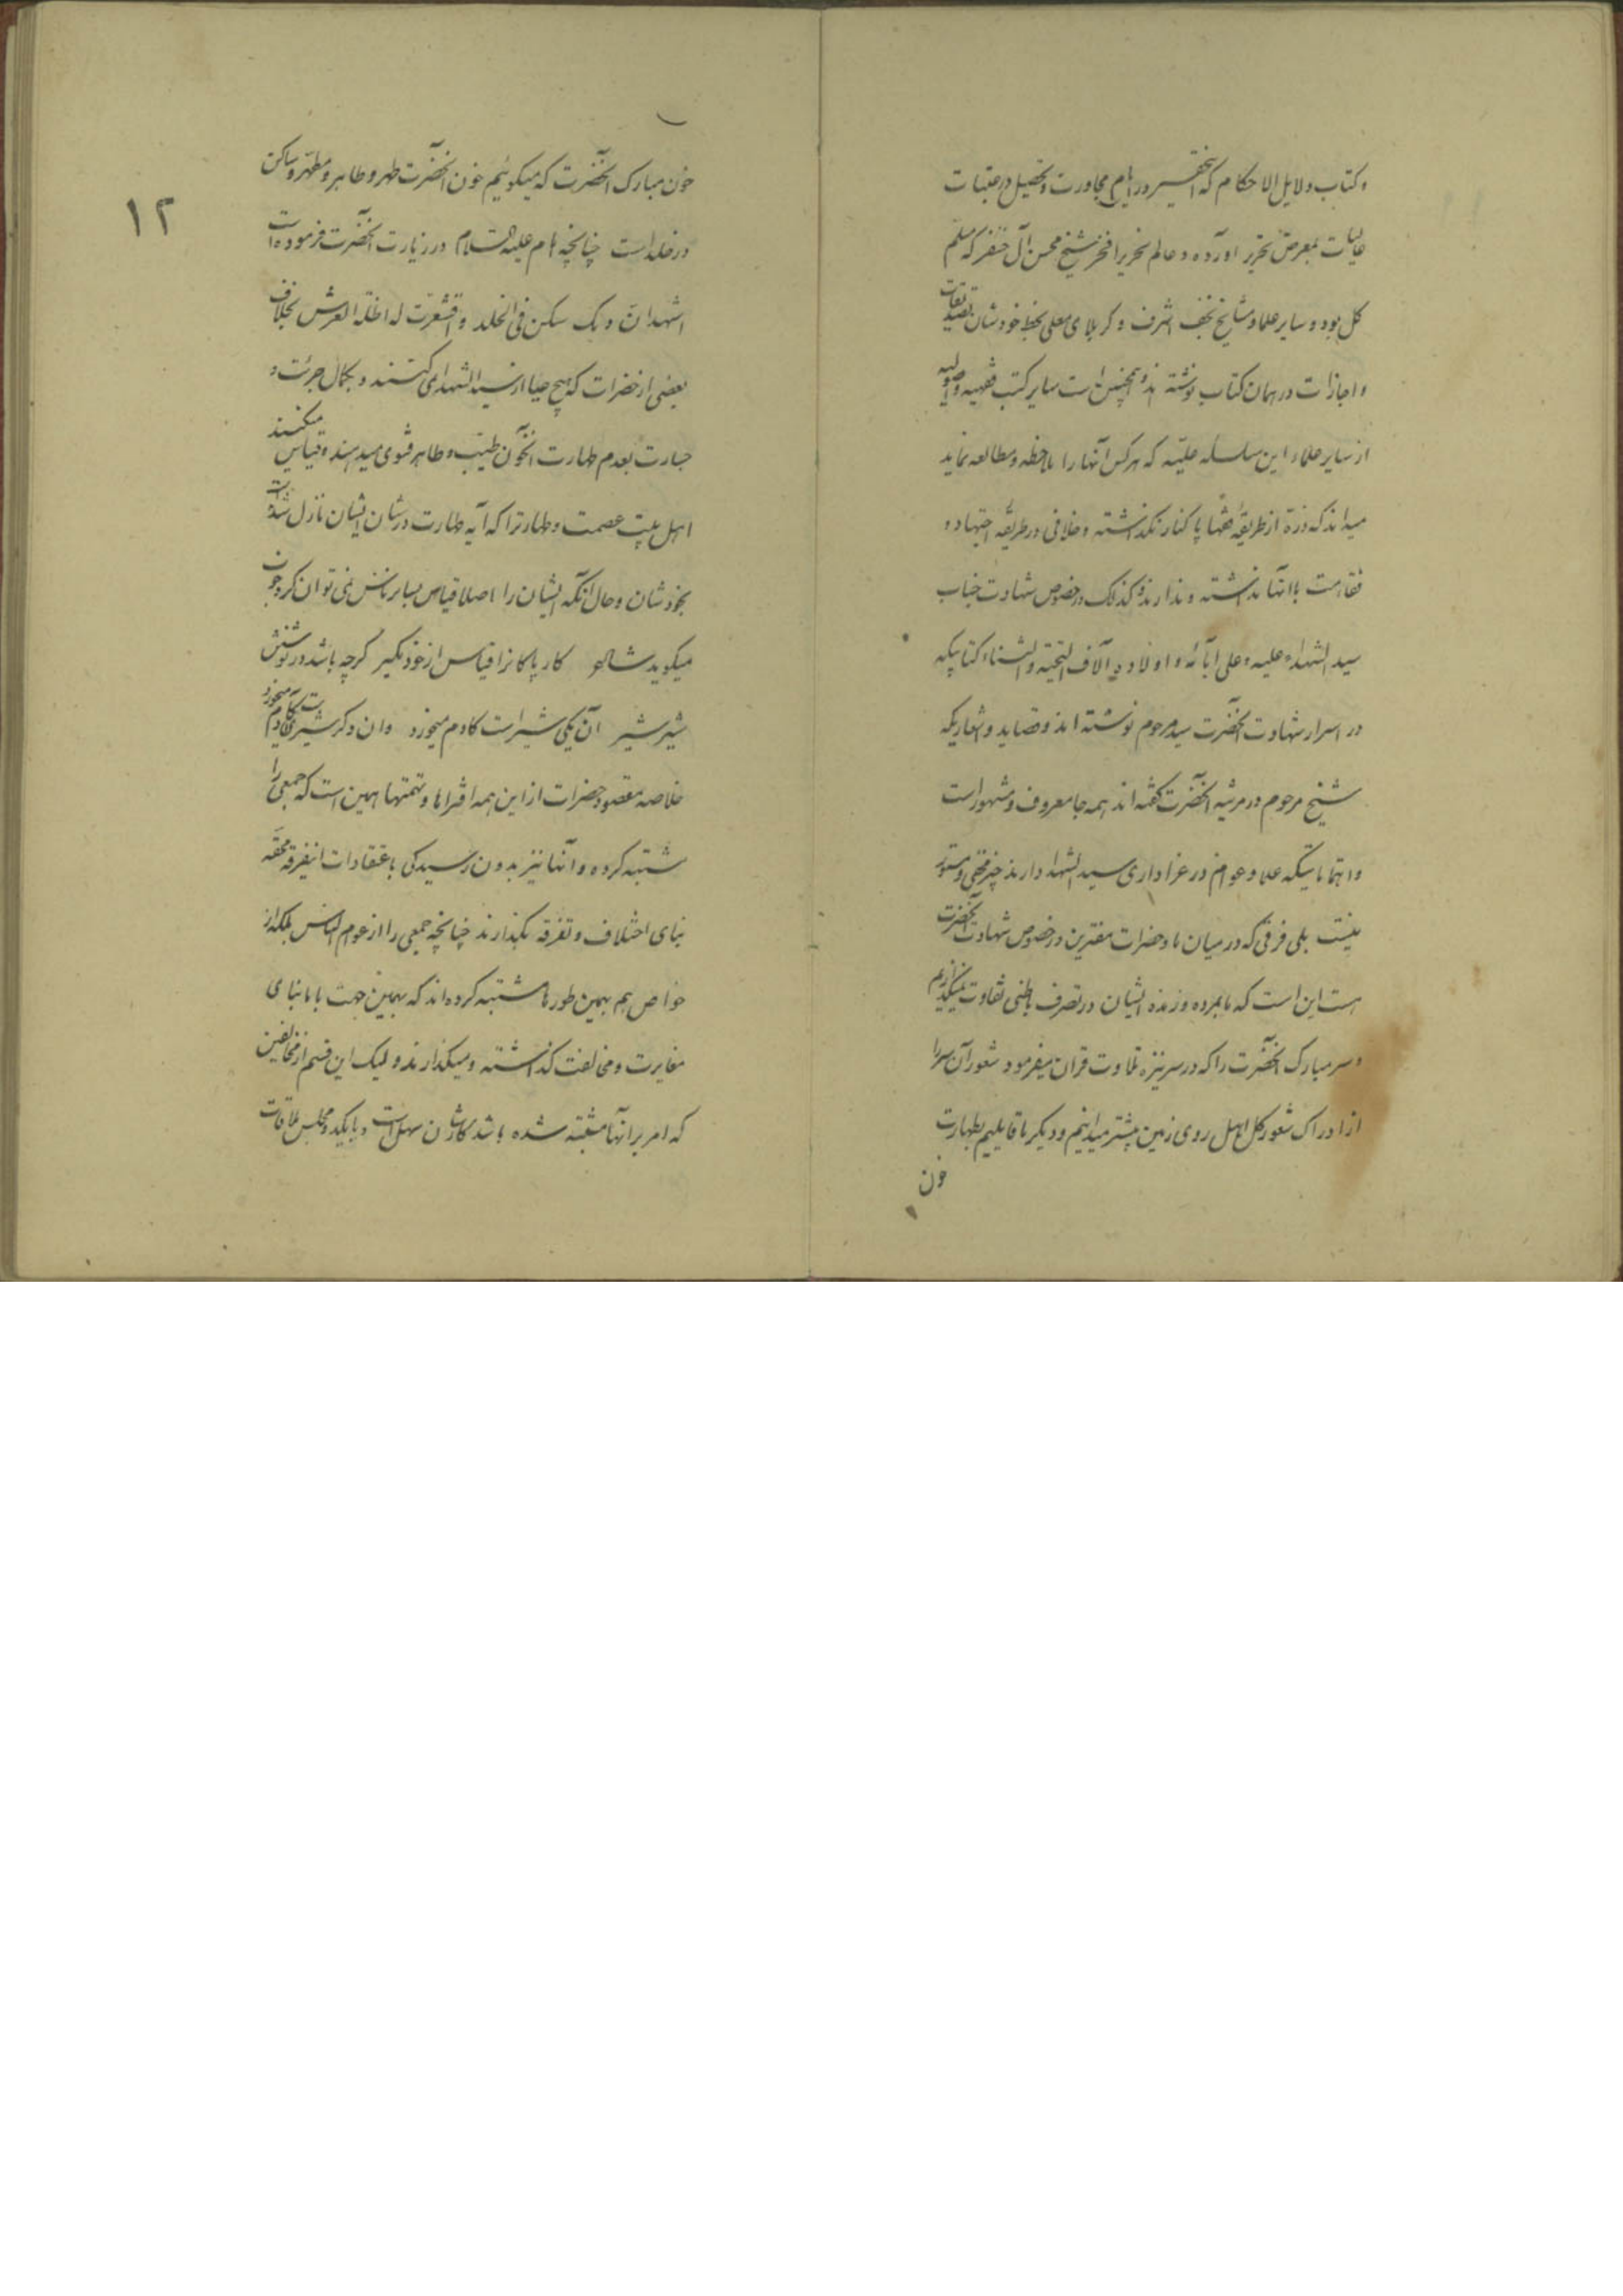 و کتاب دلایل الاحکام که اینحقیر در ایام مجاورت و تحصیل در عتبات
عالیات بمعرض تحریر اورده و عالم نحریر افخر شیخ محسن آل خنفر که مسلم
کل بوده و سایر علما و مشایخ نجف اشرف و کربلای معلی بخط خودشان تصدیقات
و اجازات در همان کتاب نوشته اند و همچنین است سایر کتب فقهیه و اصولیه
از سایر علماء این سلسله علیّه که هر کس آنها را ملاحظه و مطالعه نماید
میداند که ذرّهٔ از طریقهٔ فقها پا کنار نگذاشته و خلافی در طریقه اجتهاد و
فقاهت با انها نداشته و ندارند و کذلک در خصوص شهادت جناب
سید الشهداء علیه و علی ابآئه و اولاده آلاف التحیّة و الثناء کتابیکه
در اسرار شهادت آنحضرت سید مرحوم نوشته اند و قصاید و اشعاریکه
شیخ مرحوم در مرثیه آنحضرت گفته اند همه جا معروف و مشهور است
و اهتماماتیکه علما و عوام در عزاداری سید الشهدا دارند چیز مخفی و مستور
نیست بلی فرقی که در میان ما و حضرات مفترین در خصوص شهادت آنحضرت
هست این است که ما بمرده و زنده ایشان در تصرف باطنی تفاوت نمیگذاریم
و سر مبارک آنحضرت را که در سر نیزه تلاوت قران میفرمود شعور آن سر را
از ادراک شعور کل اهل روی زمین بیشتر میدانیم و دیگر ما قایلیم بطهارت
خون
۱۲
خون مبارک آنحضرت که میگوئیم خون آنحضرت طهر و طاهر و مطهر و ساکن
در خلد است چنانچه امام علیه السلام در زیارت آنحضرت فرموده است
اشهد انّ دمک سکن فی الخلد و اقشعرّت له اظلّة العرش بخلاف
بعضی از حضرات که هیچ حیا از سید الشهدا نمی کنند و بکمال جرئت و
جسارت بعدم طهارت آنخون طیّب و طاهر فتوی میدهند و قیاس میکنند
اهل بیت عصمت و طهارترا که آیه طهارت در شان ایشان نازل شده است
بخودشان و حال آنکه ایشان را اصلا قیاس بسایر ناس نمی توان کرد چون
میگوید شاعر کار پاکانرا قیاس از خود مگیر گرچه باشد در نوشتن
شیر شیر آن یکی شیر است کادم میخورد وان دگر شیر است کادم میخورد
خلاصه مقصود حضرات از این همه افتراها و تهمتها همین است که جمعی را
مشتبه کرده و آنها نیز بدون رسیدگی باعتقادات اینفرقه محقّه
بنای اختلاف و تفرقه بگذارند چنانچه جمعی را از عوام الناس بلکه از
خواص هم بهمین طورها مشتبه کرده اند که بهمین جهت با ما بنای
مغایرت و مخالفت گذاشته و میگذارند و لیک این قسم از مخالفین
که امر بر انها مشتبه شده باشد کارشان سهل است و با یکدو مجلس ملاقات